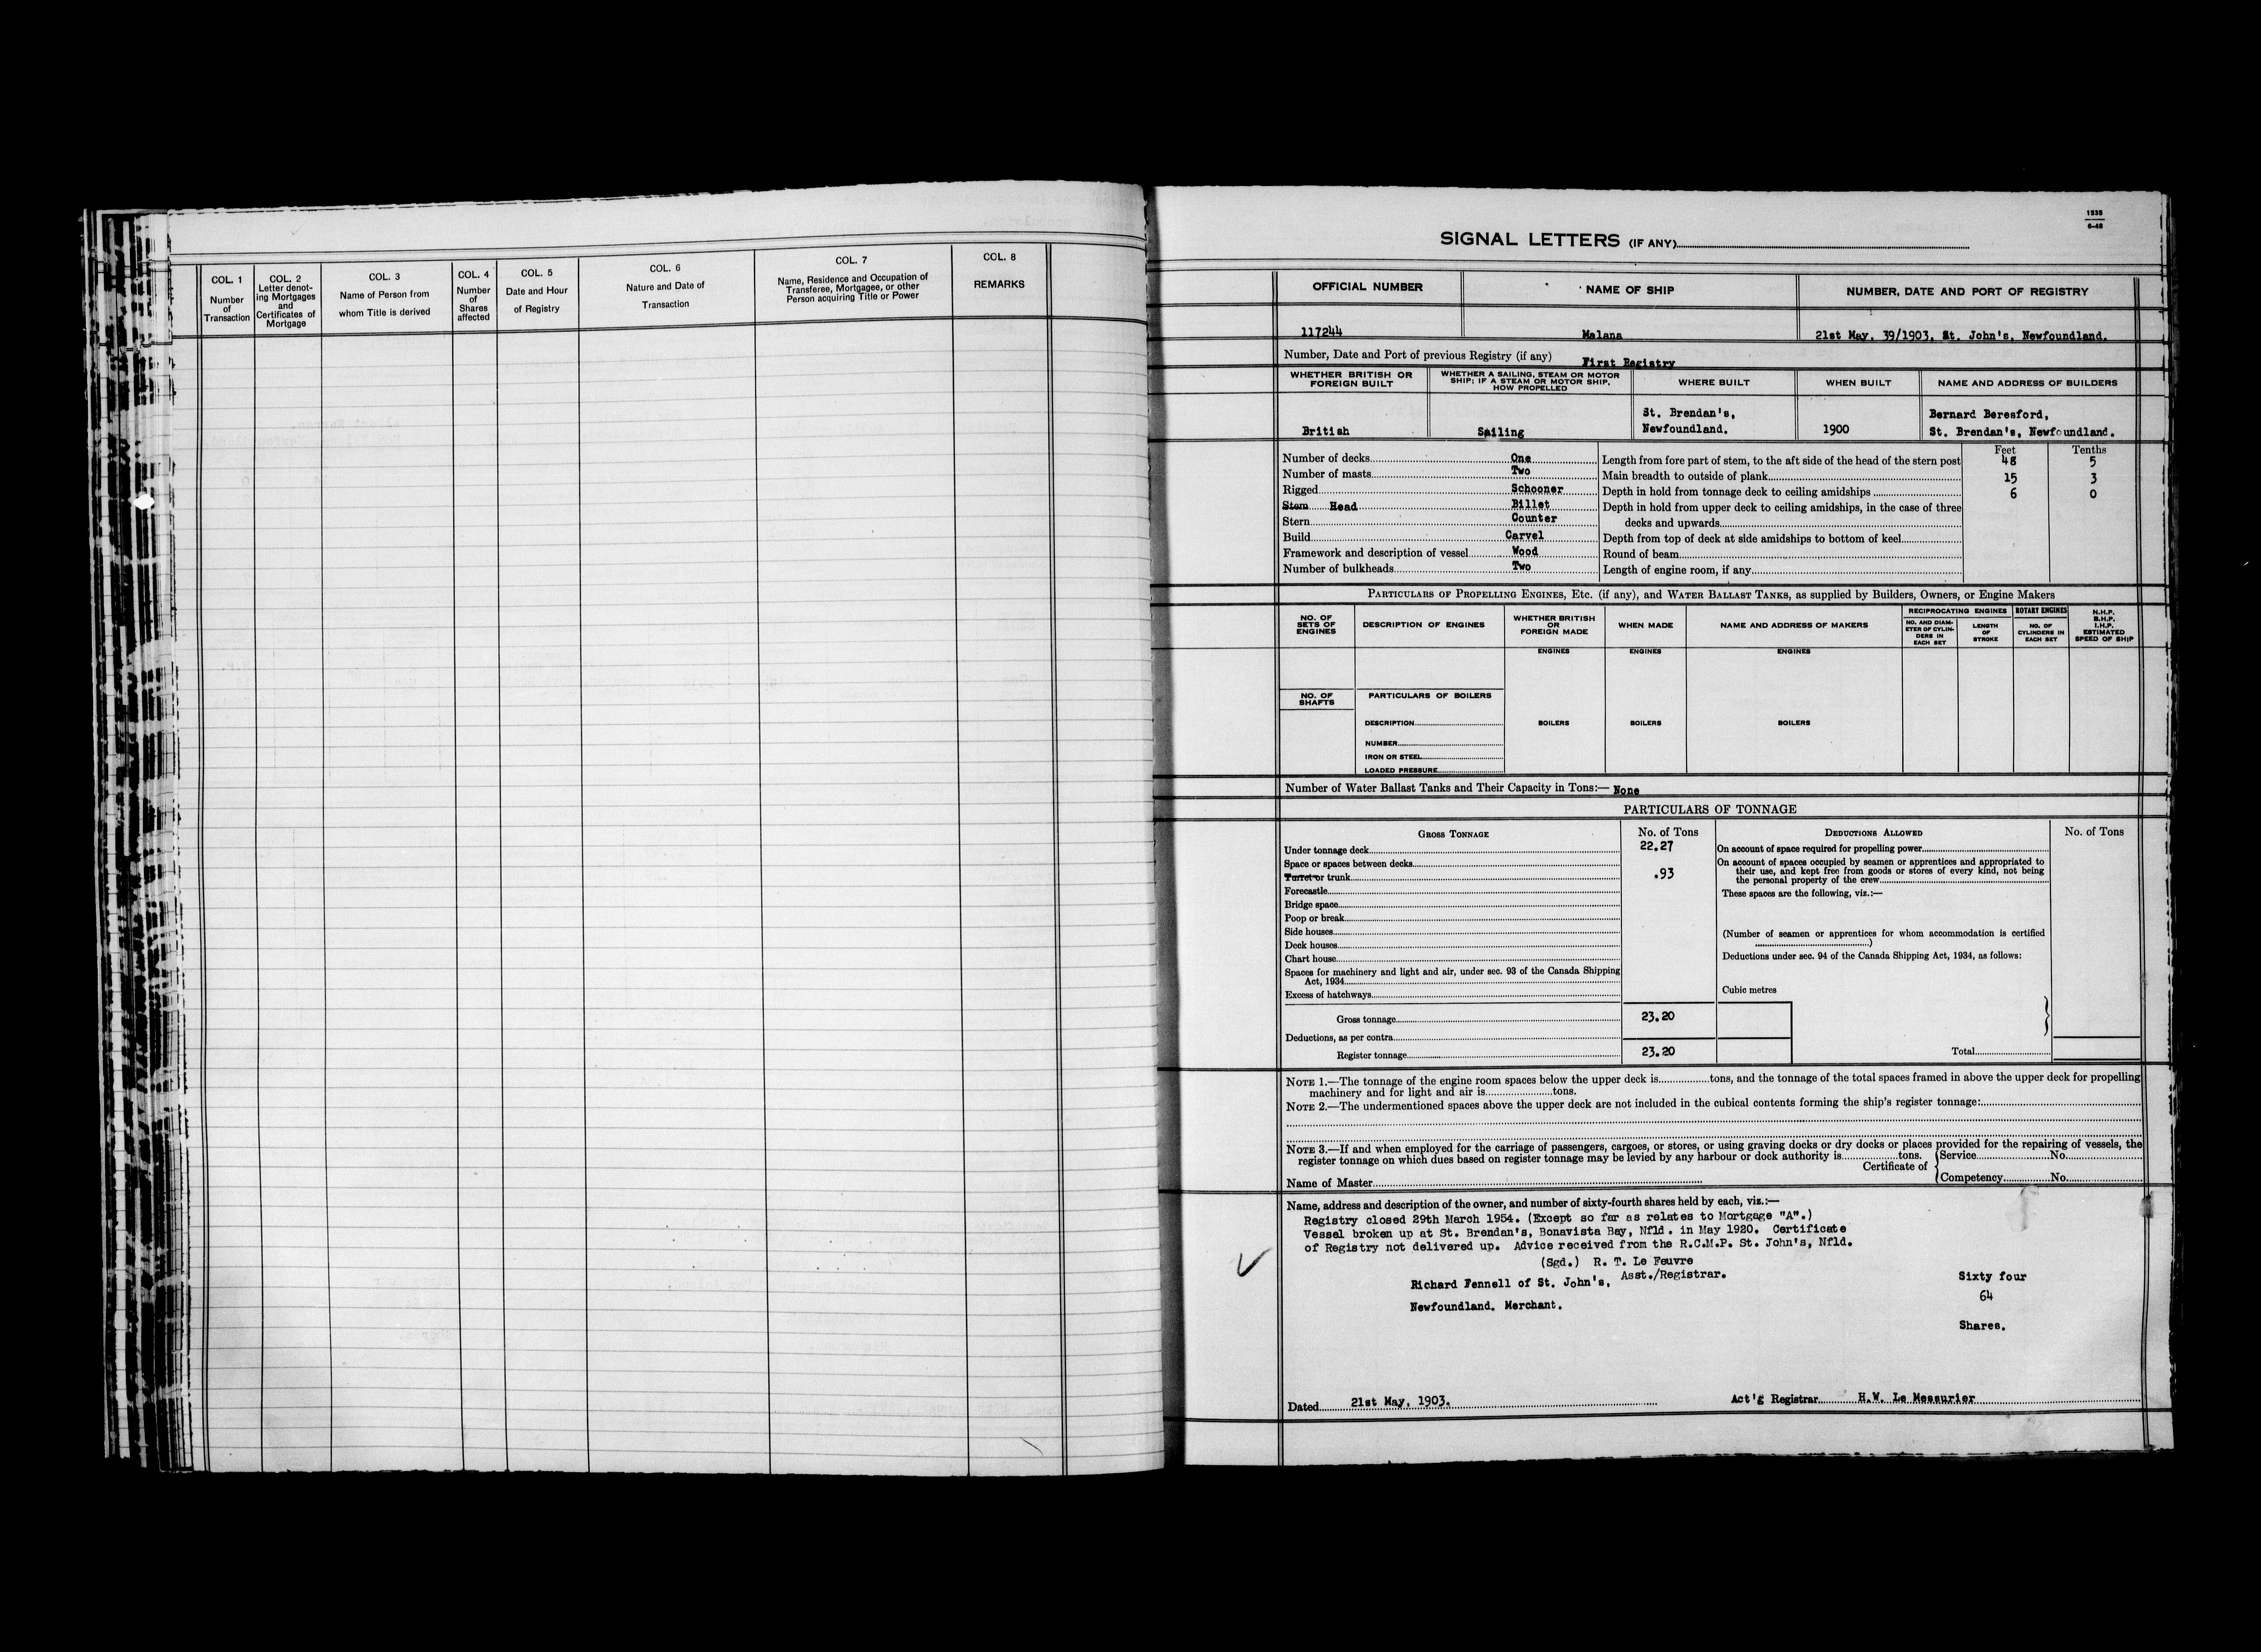 COL. 1
Number
of
Transaction
COL. 2
Letter denot-
ing Mortgages
and
Certificates of
Mortgage
COL. 3
Name of Person from
whom Title is derived
COL. 4
Number
of
Shares
affected
COL. 5
Date and Hour
of Registry
COL. 6
Nature and Date of
Transaction
COL. 7
Name, Residence and Occupation of
Transferee, Mortgagee, or other
Person acquiring Title or Power
COL. 8
REMARKS
1535
6-48
SIGNAL LETTERS (IF ANY)
OFFICIAL NUMBER
NAME OF SHIP
NUMBER, DATE AND PORT OF REGISTRY
117244
Malana
21st May, 39/1903, St. John's, Newfoundland.
Number, Date and Port of previous Registry (if any) First Registry
WHETHER BRITISH OR
FOREIGN BUILT
WHETHER A SAILING, STEAM OR MOTOR
SHIP; IF A STEAM OR MOTOR SHIP,
HOW PROPELLED
WHERE BUILT
WHEN BUILT
NAME AND ADDRESS OF BUILDERS
British
Sailing
St. Brendan's,
Newfoundland.
1900
Bernard Beresford,
St. Brendan's, Newfoundland.
Feet Tenths
Number of decks One
Number of masts Two
Rigged Schooner
Stem Head Billet
Stern Counter
Build Carvel
Framework and description of vessel Wood
Number of bulkheads Two
Length from fore part of stem, to the aft side of the head of the stern post 48 5
Main breadth to outside of plank 15 3
Depth in hold from tonnage deck to ceiling amidships 6 0
Depth in hold from upper deck to ceiling amidships, in the case of three
decks and upwards
Depth from top of deck at side amidships to bottom of keel
Round of beam
Length of engine room, if any
PARTICULARS OF PROPELLING ENGINES, ETC. (if any), and WATER BALLAST TANKS, as supplied by Builders, Owners, or Engine Makers
NO. OF
SETS OF
ENGINES
DESCRIPTION OF ENGINES
WHETHER BRITISH
OR
FOREIGN MADE
WHEN MADE
NAME AND ADDRESS OF MAKERS
RECIPROCATING ENGINES
NO. AND DIAM-
ETER OF CYLIN-
DERS IN
EACH SET
LENGTH
OF
STROKE
ROTARY ENGINES
NO. OF
CYLINDERS IN
EACH SET
N.H.P.
B.H.P.
I.H.P.
ESTIMATED
SPEED OF SHIP
ENGINES ENGINES ENGINES
NO. OF
SHAFTS
PARTICULARS OF BOILERS
DESCRIPTION
BOILERS BOILERS BOILERS
NUMBER
IRON OR STEEL
LOADED PRESSURE
Number of Water Ballast Tanks and Their Capacity in Tons:— None
PARTICULARS OF TONNAGE
GROSS TONNAGE No. of Tons
Under tonnage deck 22.27
Space or spaces between decks
Turret or trunk .93
Forecastle
Bridge space
Poop or break
Side houses
Deck houses
Chart house
Spaces for machinery and light and air, under sec. 93 of the Canada Shipping
Act, 1934
Excess of hatchways
Gross tonnage 23.20
Deductions, as per contra
Register tonnage 23.20
DEDUCTIONS ALLOWED No. of Tons
On account of space required for propelling power
On account of spaces occupied by seamen or apprentices and appropriated to
their use, and kept free from goods or stores of every kind, not being
the personal property of the crew
These spaces are the following, viz.:—
(Number of seamen or apprentices for whom accommodation is certified
)
Deductions under sec. 94 of the Canada Shipping Act, 1934, as follows:
Cubic metres
Total
NOTE 1.—The tonnage of the engine room spaces below the upper deck is tons, and the tonnage of the total spaces framed in above the upper deck for propelling
machinery and for light and air is tons.
NOTE 2.—The undermentioned spaces above the upper deck are not included in the cubical contents forming the ship's register tonnage:
NOTE 3.—If and when employed for the carriage of passengers, cargoes, or stores, or using graving docks or dry docks or places provided for the repairing of vessels, the
register tonnage on which dues based on register tonnage may be levied by any harbour or dock authority is tons.
Certificate of { Service No.
Competency No.
Name of Master
Name, address and description of the owner, and number of sixty-fourth shares held by each, viz.:—
Registry closed 29th March 1954. (Except so far as relates to Mortgage "A".)
Vessel broken up at St. Brendan's, Bonavista Bay, Nfld. in May 1920. Certificate
of Registry not delivered up. Advice received from the R.C.M.P. St. John's, Nfld.
(Sgd.) R. T. Le Feuvre
Asst./Registrar.
Richard Fennell of St. John's,
Newfoundland. Merchant.
Sixty four
64
Shares.
Dated 21st May, 1903. Act'g Registrar H.W. Le Messurier